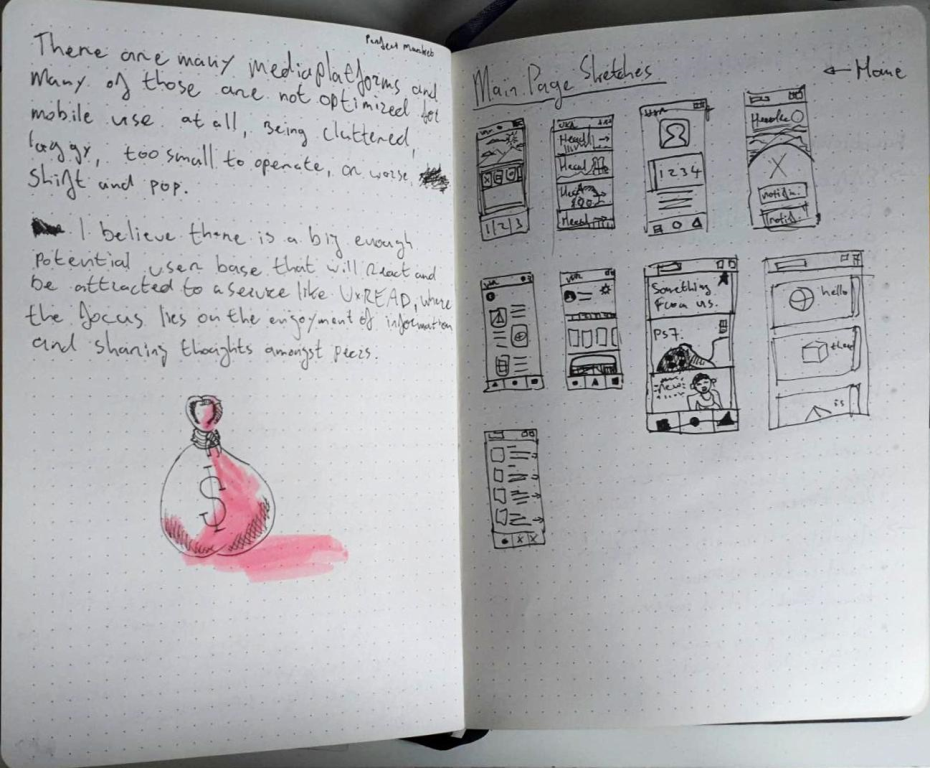 There are many media platforms and
many of those are not optimized for
mobile use at all, being cluttered,
laggy, too small to operate, or worse,
shift and pop.
I believe there is a big enough
potential user base that will react and
be attracted to a service like UxREAD, where
the focus lies on the enjoyment of information
and sharing thoughts amongst peers.
$
Main Page Sketches
← Home
1 2 3
Head
Head
Head
1 2 3 4
Header
notif
notif
Something
from us.
Ps7.
hello
is